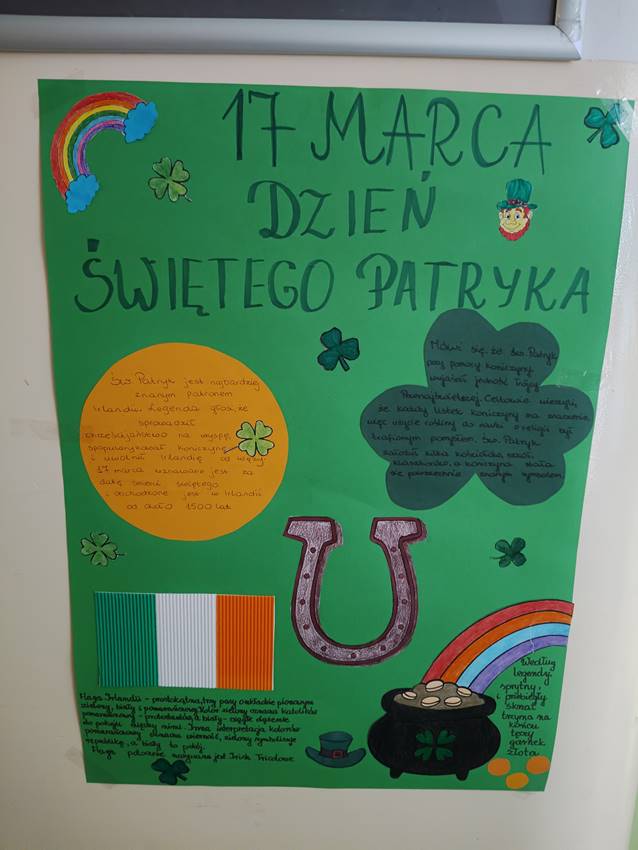 17 MARCA
DZIEŃ
ŚWIĘTEGO PATRYKA
Św. Patryk jest najbardziej
znanym patronem
Irlandii. Legenda głosi, że
sprowadził
chrześcijaństwo na wyspę,
spopularyzował koniczynę
i uwolnił Irlandię od węży.
17 marca uznawane jest za
datę śmierci świętego
i obchodzone jest w Irlandii
od około 1500 lat
Mówi się, że św. Patryk
przy pomocy koniczyny
wyjaśnił jedność Trójcy
Przenajświętszej. Celtowie wierzyli,
że każdy listek koniczyny ma znaczenie,
więc użycie rośliny do nauki o religii był
trafionym pomysłem. Św. Patryk
założył kilka kościołów, szkół,
klasztorów, a koniczyna stała
się powszechnie znanym symbolem
Flaga Irlandii - prostokątna, trzy pasy w układzie pionowym
zielony, biały i pomarańczowy. Kolor zielony oznacza katolików
pomarańczowy - protestantów, a biały - ciągłe dążenie
do pokoju między nimi. Inna interpretacja kolorów
pomarańczowy oznacza wierność, zielony symbolizuje
republikę, a biały to pokój.
Flaga potocznie nazywana jest Irish Tricolour
Według
legendy
sprytny,
i przebiegły
skrzat
trzyma na
końcu
tęczy
garnek
złota